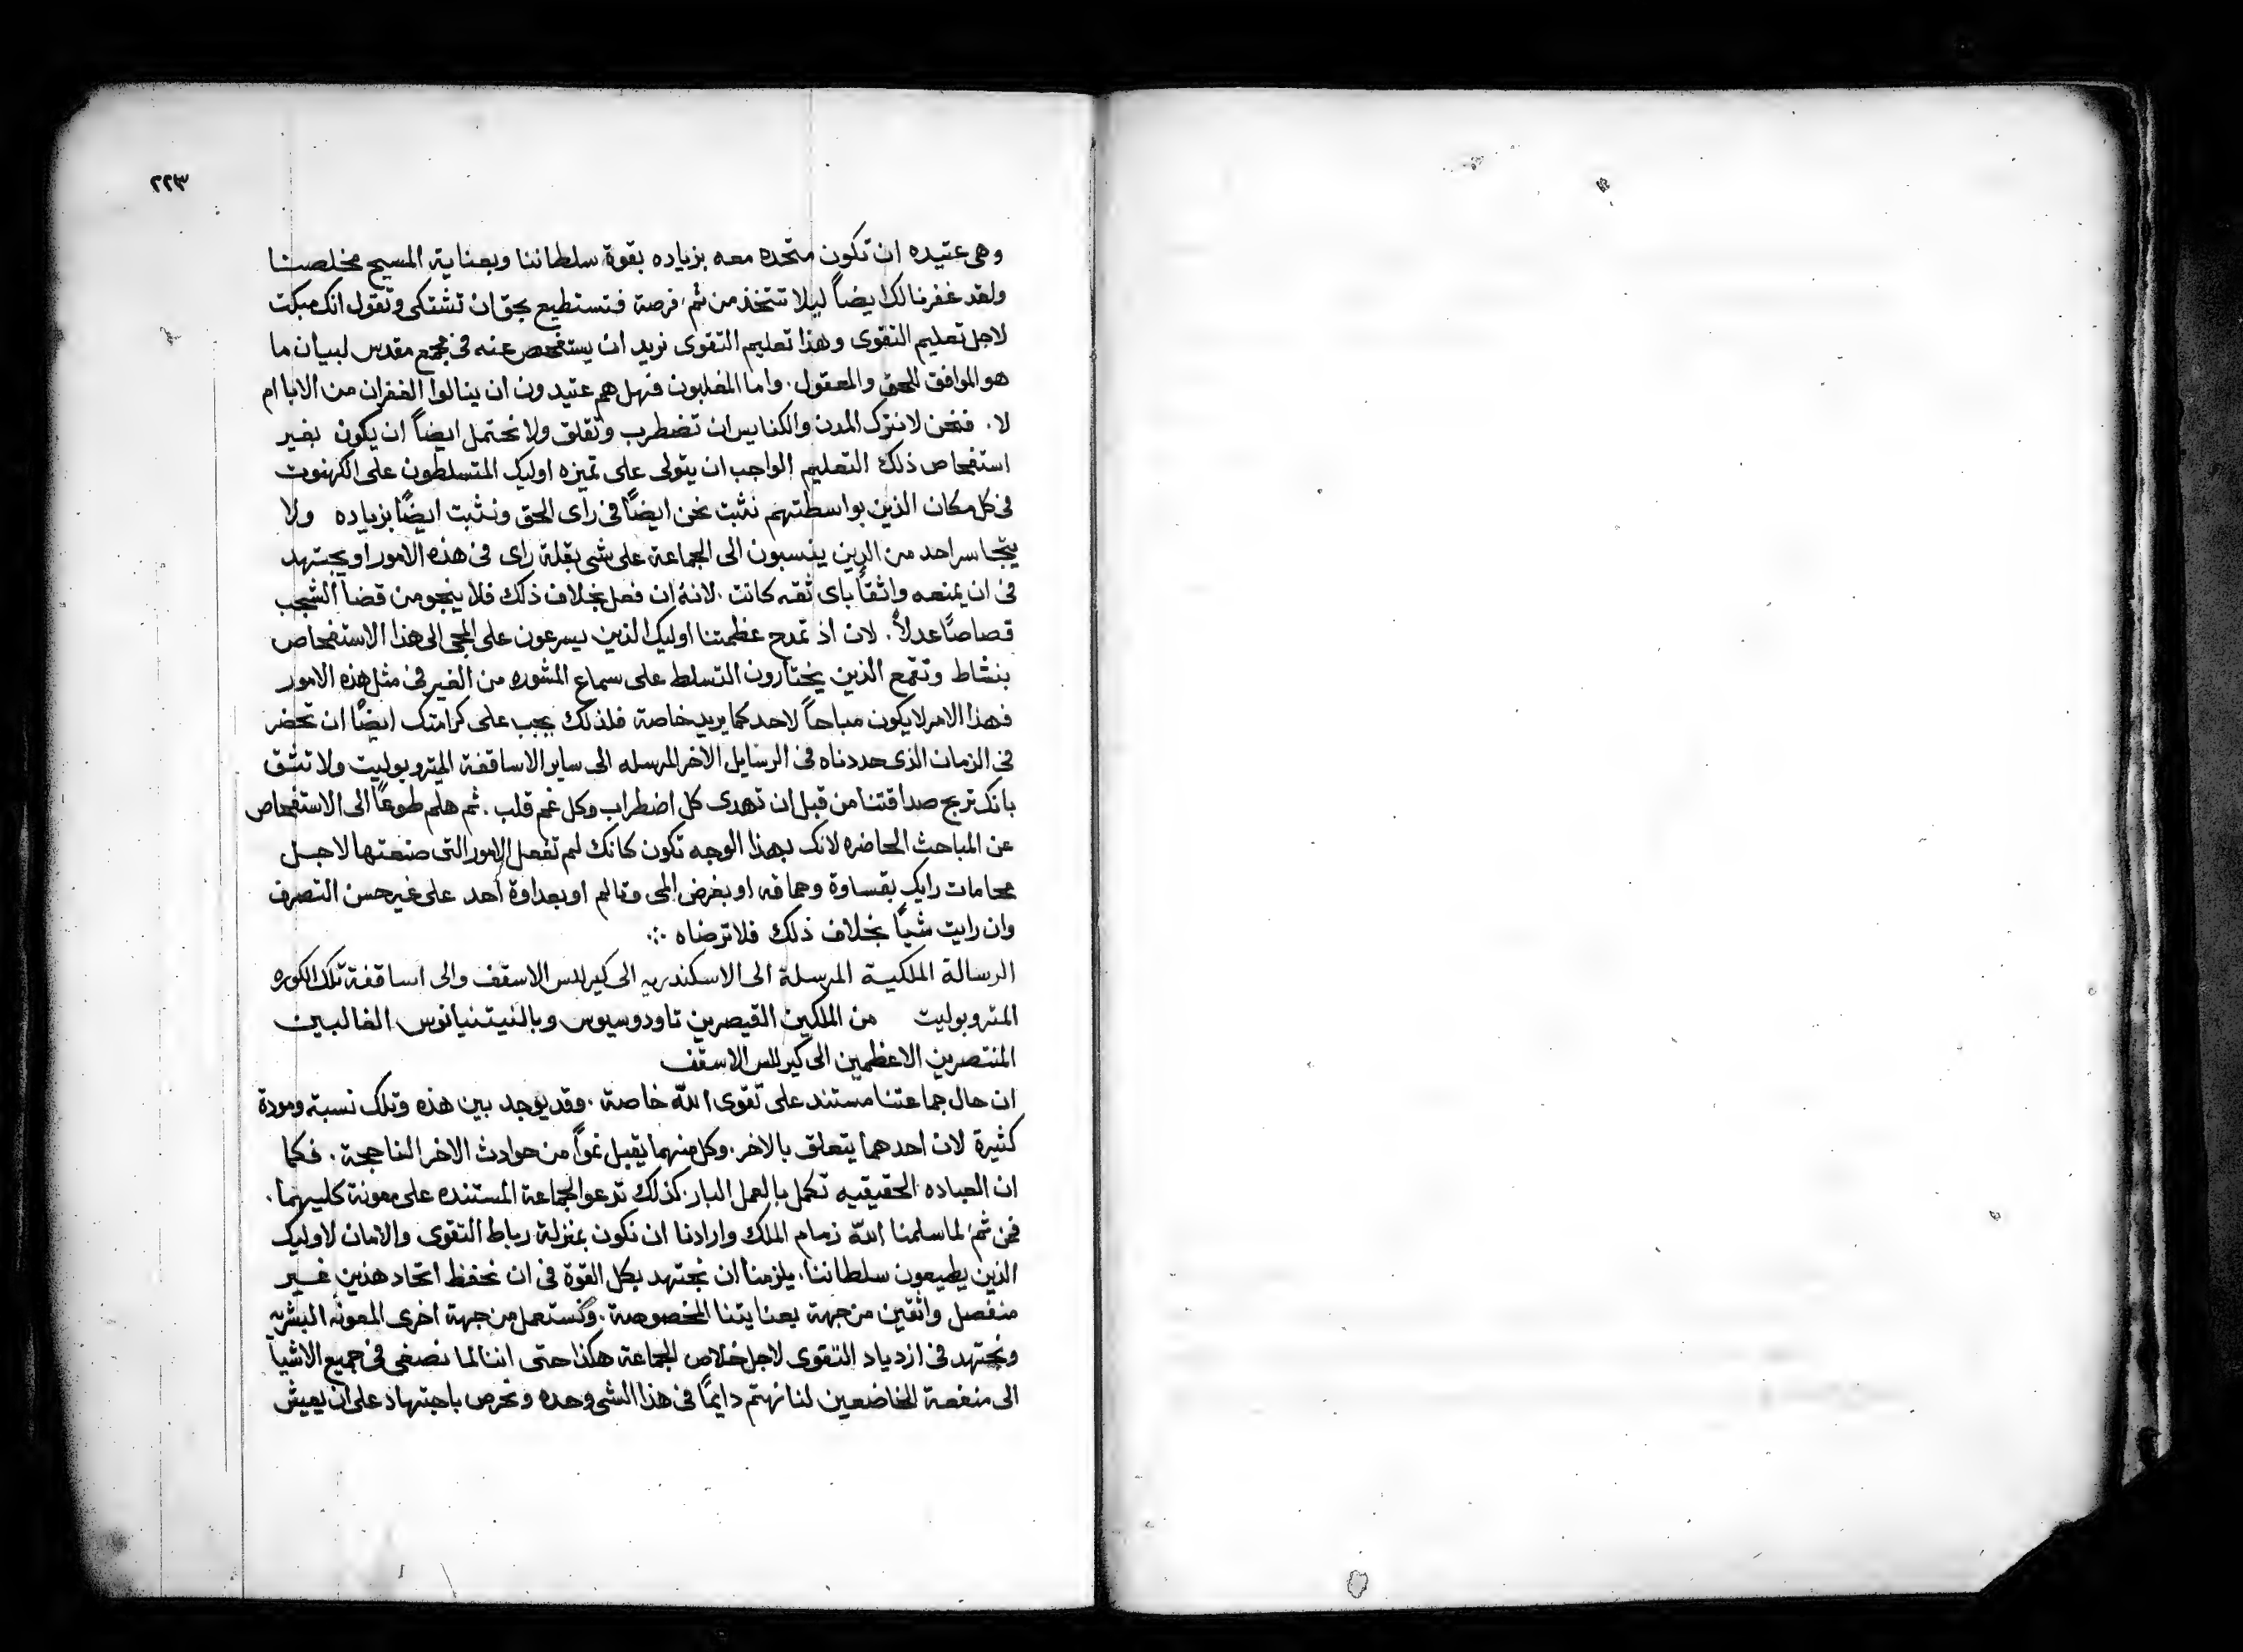 ٢٢٣
وهى عتيده ان تكون متحده معه بزياده بقوة سلطاننا وبعناية المسيح مخلصنا
ولقد غفرنا لك ايضاً ليلا تتخذ من ثم فرصة فتستطيع بحق ان تشتكى وتقول انك مبكت
لاجل تعليم التقوى وهذا تعليم التقوى نريد ان يستفحص عنه فى مجمع مقدس لبيان ما
هو الموافق للحق والمعقول. واما المغلبون فهل هم عتيدون ان ينالوا الغفران من الابا ام
لا. فنحن لا نترك المدن والكنايس ان تضطرب وتقلق ولا نحتمل ايضاً ان يكون بغير
استفحاص ذلك التعليم الواجب ان يتولى على تميزه اوليك المتسلطون على الكهنوت
فى كل مكان الذين بواسطتهم نثبت نحن ايضاً فى راى الحق ونثبت ايضاً بزياده ولا
يتجاسر احد من الذين ينسبون الى الجماعة على شى بقلة راى فى هذه الامور او يجتهد
فى ان يمنعه واثقاً باى ثقه كانت. لانه ان فعل بخلاف ذلك فلا ينجو من قضا الشجب
قصاصاً عدلاً. لان اذ تمدح عظمتنا اوليك الذين يسرعون على المجى الى هذا الاستفحاص
بنشاط وتقمع الذين يختارون التسلط على سماع المشوره من الغير فى مثل هذه الامور
فهذا الامر لا يكون مباحاً لاحد كما يريد خاصة فلذلك يجب على كرامتك ايضاً ان تحضر
فى الزمان الذى حددناه فى الرسايل الاخر المرسله الى ساير الاساقفة الميتروبوليت ولا تثق
بانك تربح صداقتنا من قبل ان تهدى كل اضطراب وكل غم قلب. ثم هلم طوعاً الى الاستفحاص
عن المباحث الحاضره لانك بهذا الوجه تكون كانك لم تفعل الامور التى صنعتها لاجل
محامات رايك بقساوة وحماقه او بغرض المى وتالم او بعداوة احد على غير حسن التصرف
وان رايت شياً بخلاف ذلك فلا ترضاه ∴
الرسالة الملكية المرسلة الى الاسكندريه الى كيرللس الاسقف والى اساقفة تلك الكوره
المتروبوليت من الملكين القيصرين تاودوسيوس وبالنيتنيانوس الغالبين
المنتصرين الاعظمين الى كيرللس الاسقف
ان حال جماعتنا مستند على تقوى الله خاصة. وقد يوجد بين هذه وتلك نسبة ومودة
كثيرة لان احدهما يتعلق بالاخر. وكل منهما يقبل نمواً من حوادث الاخر الناجحة. فكما
ان العباده الحقيقيه تكمل بالعمل البار. كذلك تدعو الجماعة المستنده على معونة كليهما.
فمن ثم لما سلمنا الله زمام الملك وارادنا ان نكون بمنزلة رباط التقوى والامان لاوليك
الذين يطيعون سلطاننا. يلزمنا ان نجتهد بكل القوة فى ان نحفظ اتحاد هذين غير
منفصل واثقين من جهة بعنايتنا المخصوصة. ونستعمل من جهة اخرى المعونه البشريه
ونجتهد فى ازدياد التقوى لاجل خلاص الجماعة هكذا حتى اننا لما نصغى فى جميع الاشيا
الى منفعة الخاضعين لنا نهتم دايماً فى هذا الشى وحده ونحرص باجتهاد على ان يعيش